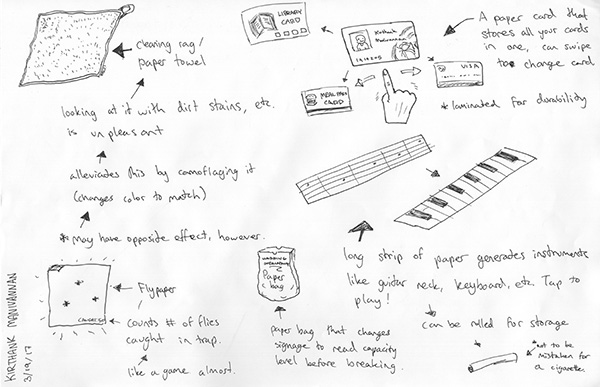 cleaning rag/
paper towel
looking at it with dirt stains, etc.
is unpleasant
alleviates this by camoflaging it
(changes color to match)
* may have opposite effect, however.
Flypaper
counts # of flies
caught in trap.
like a game almost.
KIRTHANK MANIVANNAN
3/19/17
LIBRARY
CARD
Kirthank
Manivannan
MEAL PLAN
CARD
VISA
A paper card that
stores all your cards
in one, can swipe
to change card
* laminated for durability
long strip of paper generates instruments
like guitar neck, keyboard, etc. Tap to
play!
can be rolled for storage
* not to be
mistaken for
a cigarette.
Paper
bag
paper bag that changes
signage to read capacity
level before breaking.